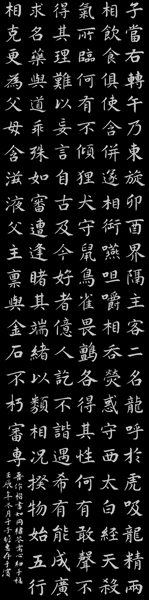 子當右轉午乃東旋卯酉界隔主客二名龍呼於虎吸龍精兩
相飲食俱使合併遂相銜嚥咀嚼相吞熒惑守西太白經天殺
氣所臨何有不傾狸犬守鼠鳥雀畏鸇各得其性何有敢聲不
得其理難以妄言自古及今好者億人訖不諧遇希有能成廣
求名藥與道乖殊如審遭逢睹其端緒以類相況揆物始五行
相克更為父母含滋液父主稟與金石不朽審專
作楷書如同繡花
壬辰年冬月于